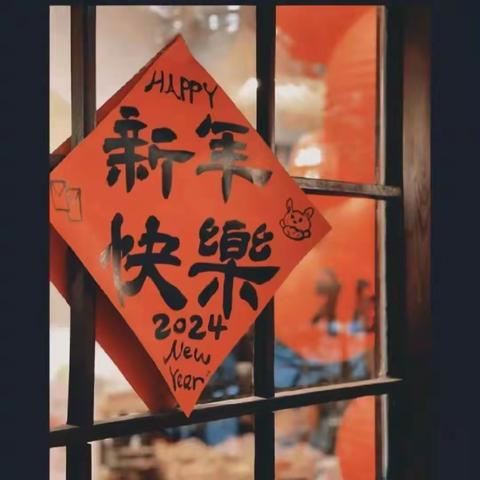 HAPPY
新年
快樂
2024
New
Year